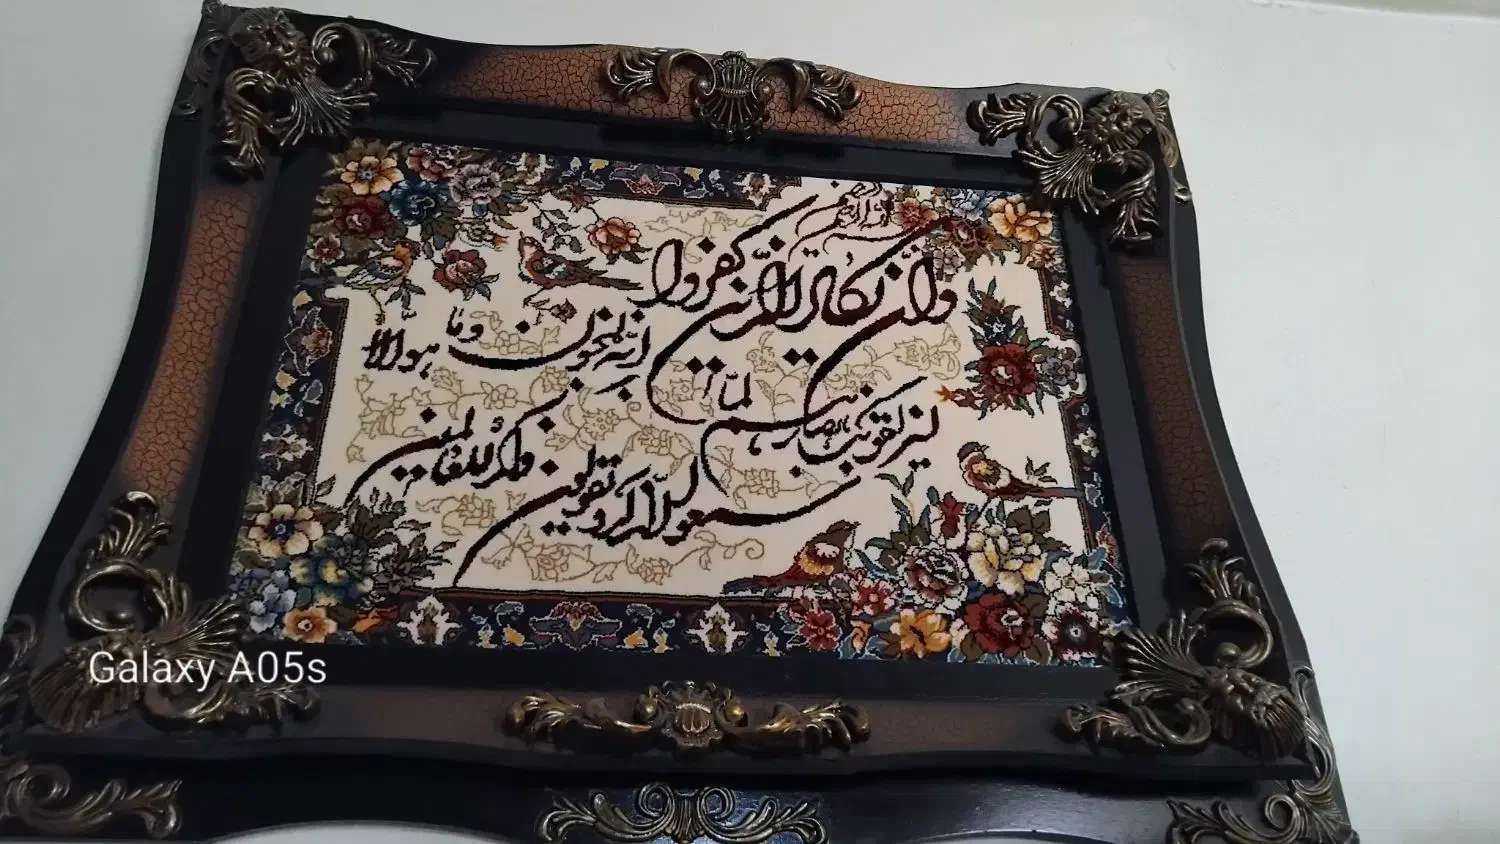 وان یکاد الذین کفروا
لیزلقونک بابصارهم لما
سمعوا الذکر و یقولون
انه لمجنون و ما هو الا
ذکر للعالمین
Galaxy A05s